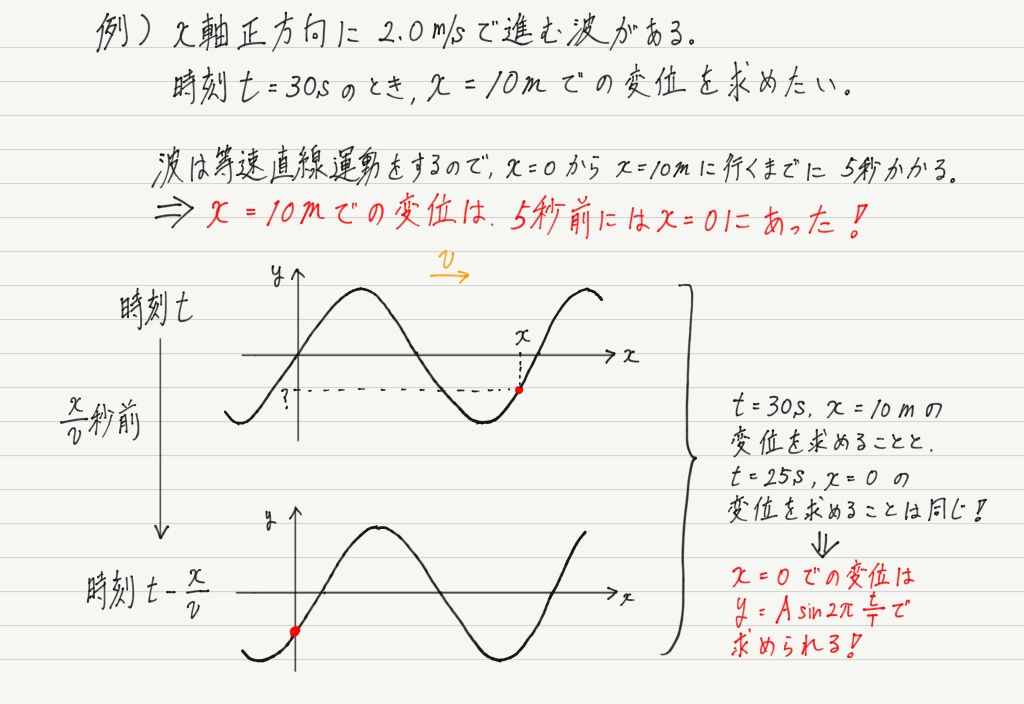 例) x軸正方向に 2.0m/sで進む波がある。
時刻t=30sのとき, x=10mでの変位を求めたい。
波は等速直線運動をするので, x=0から x=10mに行くまでに 5秒かかる。
⇒ x=10mでの変位は, 5秒前にはx=0にあった!
v
y
時刻t
x
x
?
x/v秒前
t=30s, x=10mの
変位を求めることと,
t=25s, x=0の
変位を求めることは同じ!
⇓
y
x
時刻 t-x/v
x=0での変位は
y=A sin2π t/Tで
求められる!